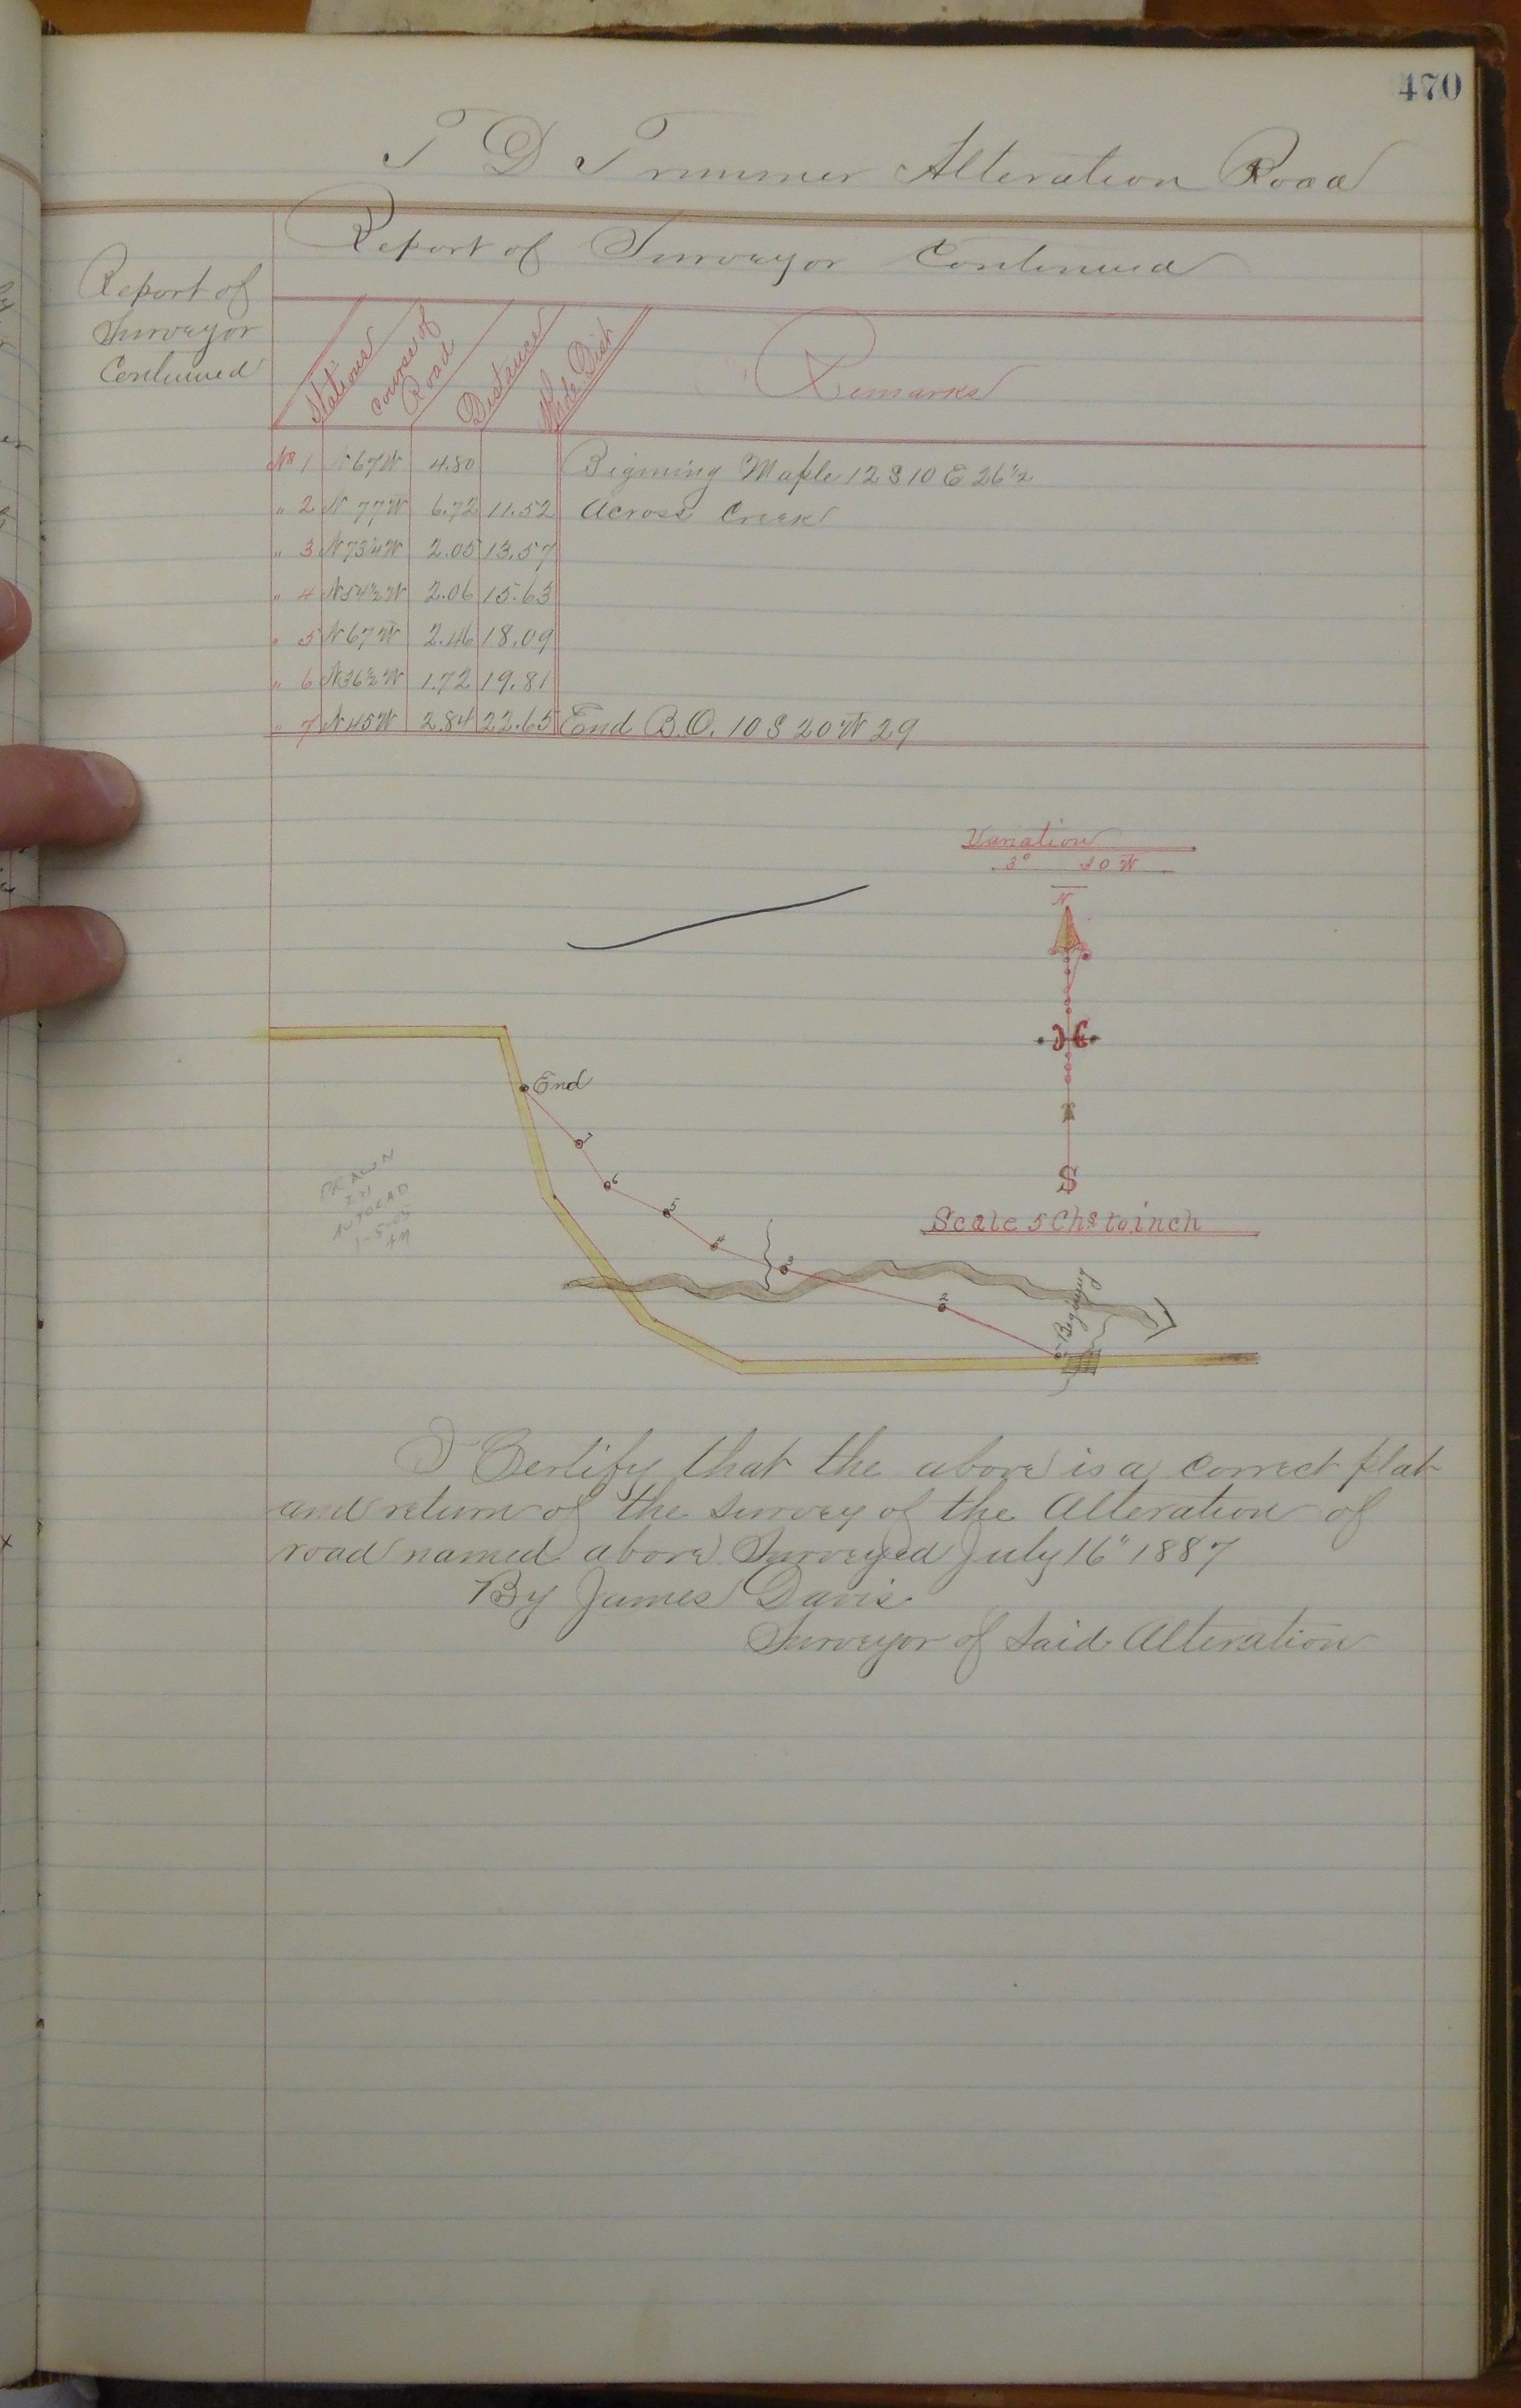 470
T D Trimmer Alteration Road
Report of Surveyor Continued
Report of
Surveyor
Continued
Stations
Course of
Road
Distance
Whole Dist
Remarks
No 1 N 67 W 4.80 Bigining Maple 12 S 10 E 26½
" 2 N 77 W 6.72 11.52 Across Creek
" 3 N 73¼ W 2.05 13.57
" 4 N 54½ W 2.06 15.63
" 5 N 67 W 2.46 18.09
" 6 N 36½ W 1.72 19.81
" 7 N 45 W 2.84 22.65 End B.O. 10 S 20 W 29
Variation
3° 30 W
N
End
7
6
5
4
3
2
Begining
S
Scale 5 Chs to inch
DRAWN
IN
AUTOCAD
1-5-05
I Certify that the above is a correct plat
and return of the survey of the Alteration of
road named above Surveyed July 16" 1887
By James Davis
Surveyor of Said Alteration